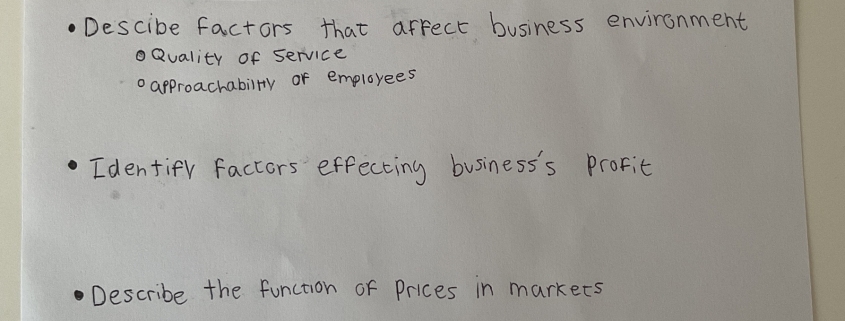 • Descibe factors that affect business environment
○ Quality of Service
○ approachability of employees
• Identify factors effecting business's profit
• Describe the function of prices in markets